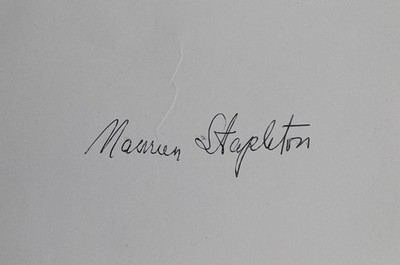 Maureen Stapleton